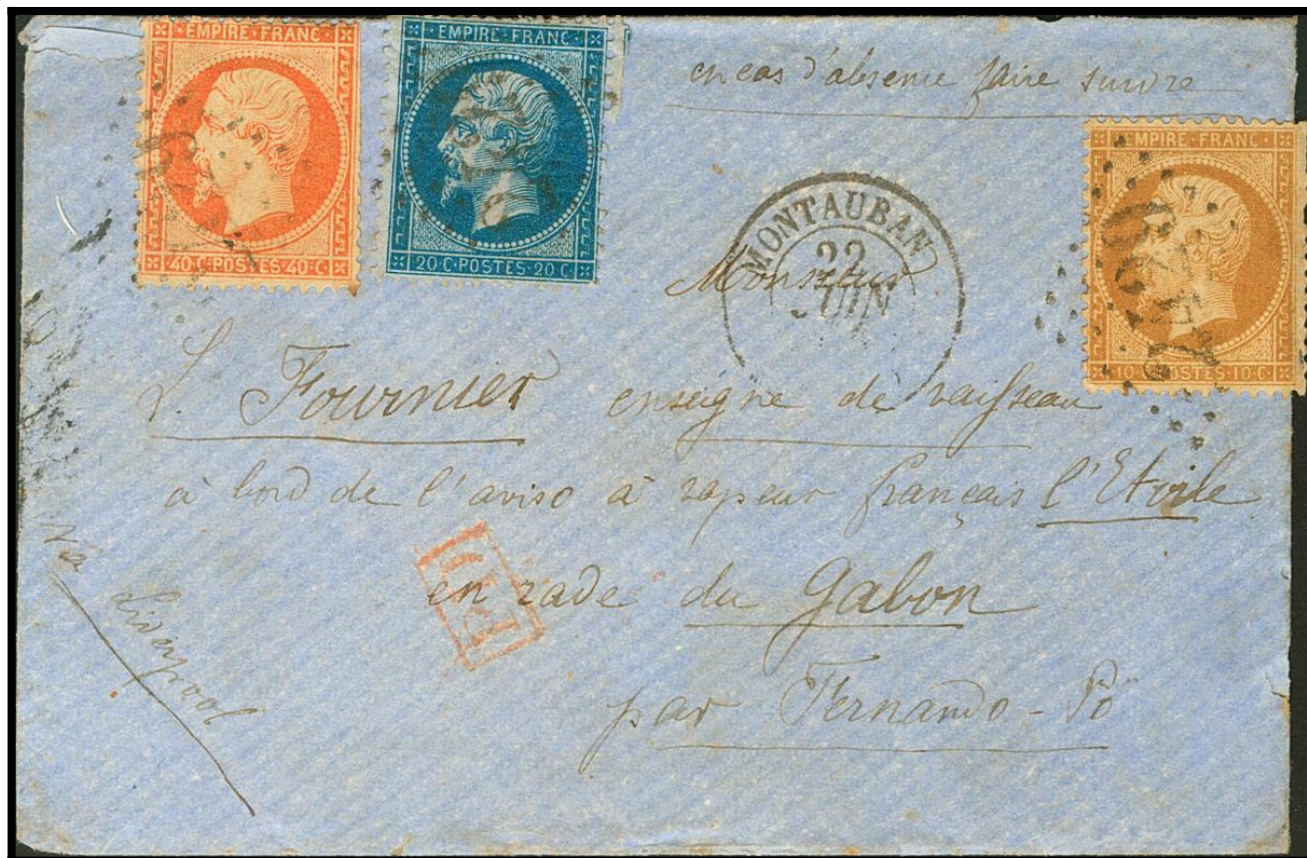 EMPIRE·FRANC·
40·C·POSTES·40·C
EMPIRE·FRANC·
20·C·POSTES·20·C
en cas d'absence faire suivre
EMPIRE·FRANC·
10·C·POSTES·10·C
MONTAUBAN
22
JUIN
Monsieur
L. Fournier enseigne de vaisseau
à bord de l'aviso à vapeur français l'Etoile
en rade du Gabon
par Fernando-Pô
Via Liverpool